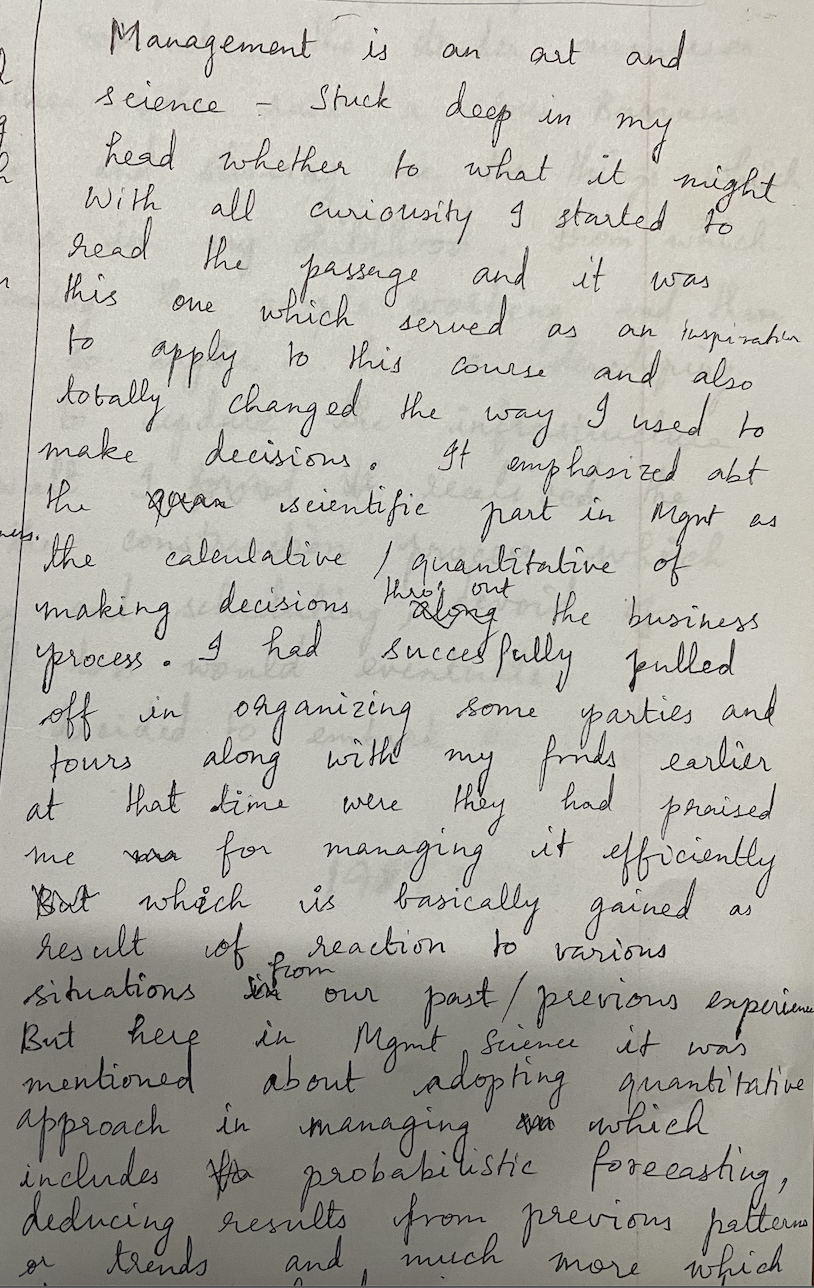 Management is an art and
science - Stuck deep in my
head whether to what it might
With all curiousity I started to
read the passage and it was
this one which served as an inspiration
to apply to this course and also
totally changed the way I used to
make decisions. It emphasized abt
the scientific part in Mgnt as
the calculative / quantitative of
making decisions thro' out the business
process. I had succesfully pulled
off in organizing some parties and
tours along with my frnds earlier
at that time were they had praised
me for managing it efficiently
which is basically gained as
result of reaction to various
situations from our past/previous experience
But here in Mgmt Science it was
mentioned about adopting quantitative
approach in managing which
includes probabilistic forecasting,
deducing results from previous patterns
or trends and much more which